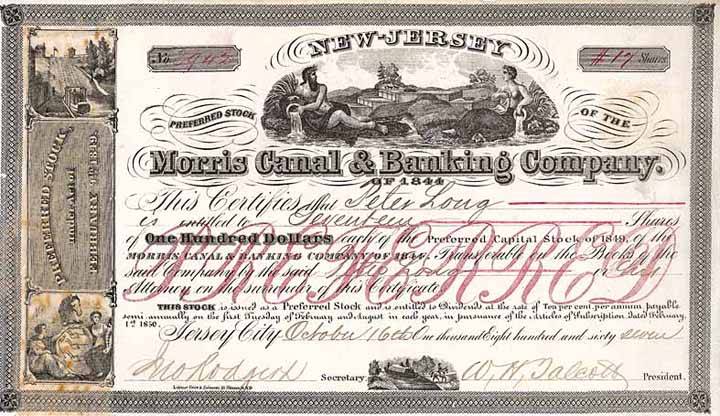 NEW-JERSEY
No. 942
#17 Shares
PREFERRED STOCK OF THE
Morris Canal & Banking Company.
OF 1844
PREFERRED STOCK,
under Act of
FEBRUARY 9th 1849.
This Certifies that Peter Long
is entitled to Seventeen Shares
of One Hundred Dollars each of the Preferred Capital Stock of 1849, of the
MORRIS CANAL & BANKING COMPANY OF 1844, Transferable on the Books of the
said Company by the said Peter Long or his
Attorney on the surrender of this Certificate
PREFERRED
THIS STOCK is issued as a Preferred Stock and is entitled to Dividends at the rate of Ten per cent. per annum payable
semi-annually on the first Tuesday of February and August in each year, in pursuance of the Articles of Subscription, dated February,
1st 1850.
Jersey City October 16th One thousand Eight hundred and sixty seven
Jno Rodgers Secretary W. H. Talcott President.